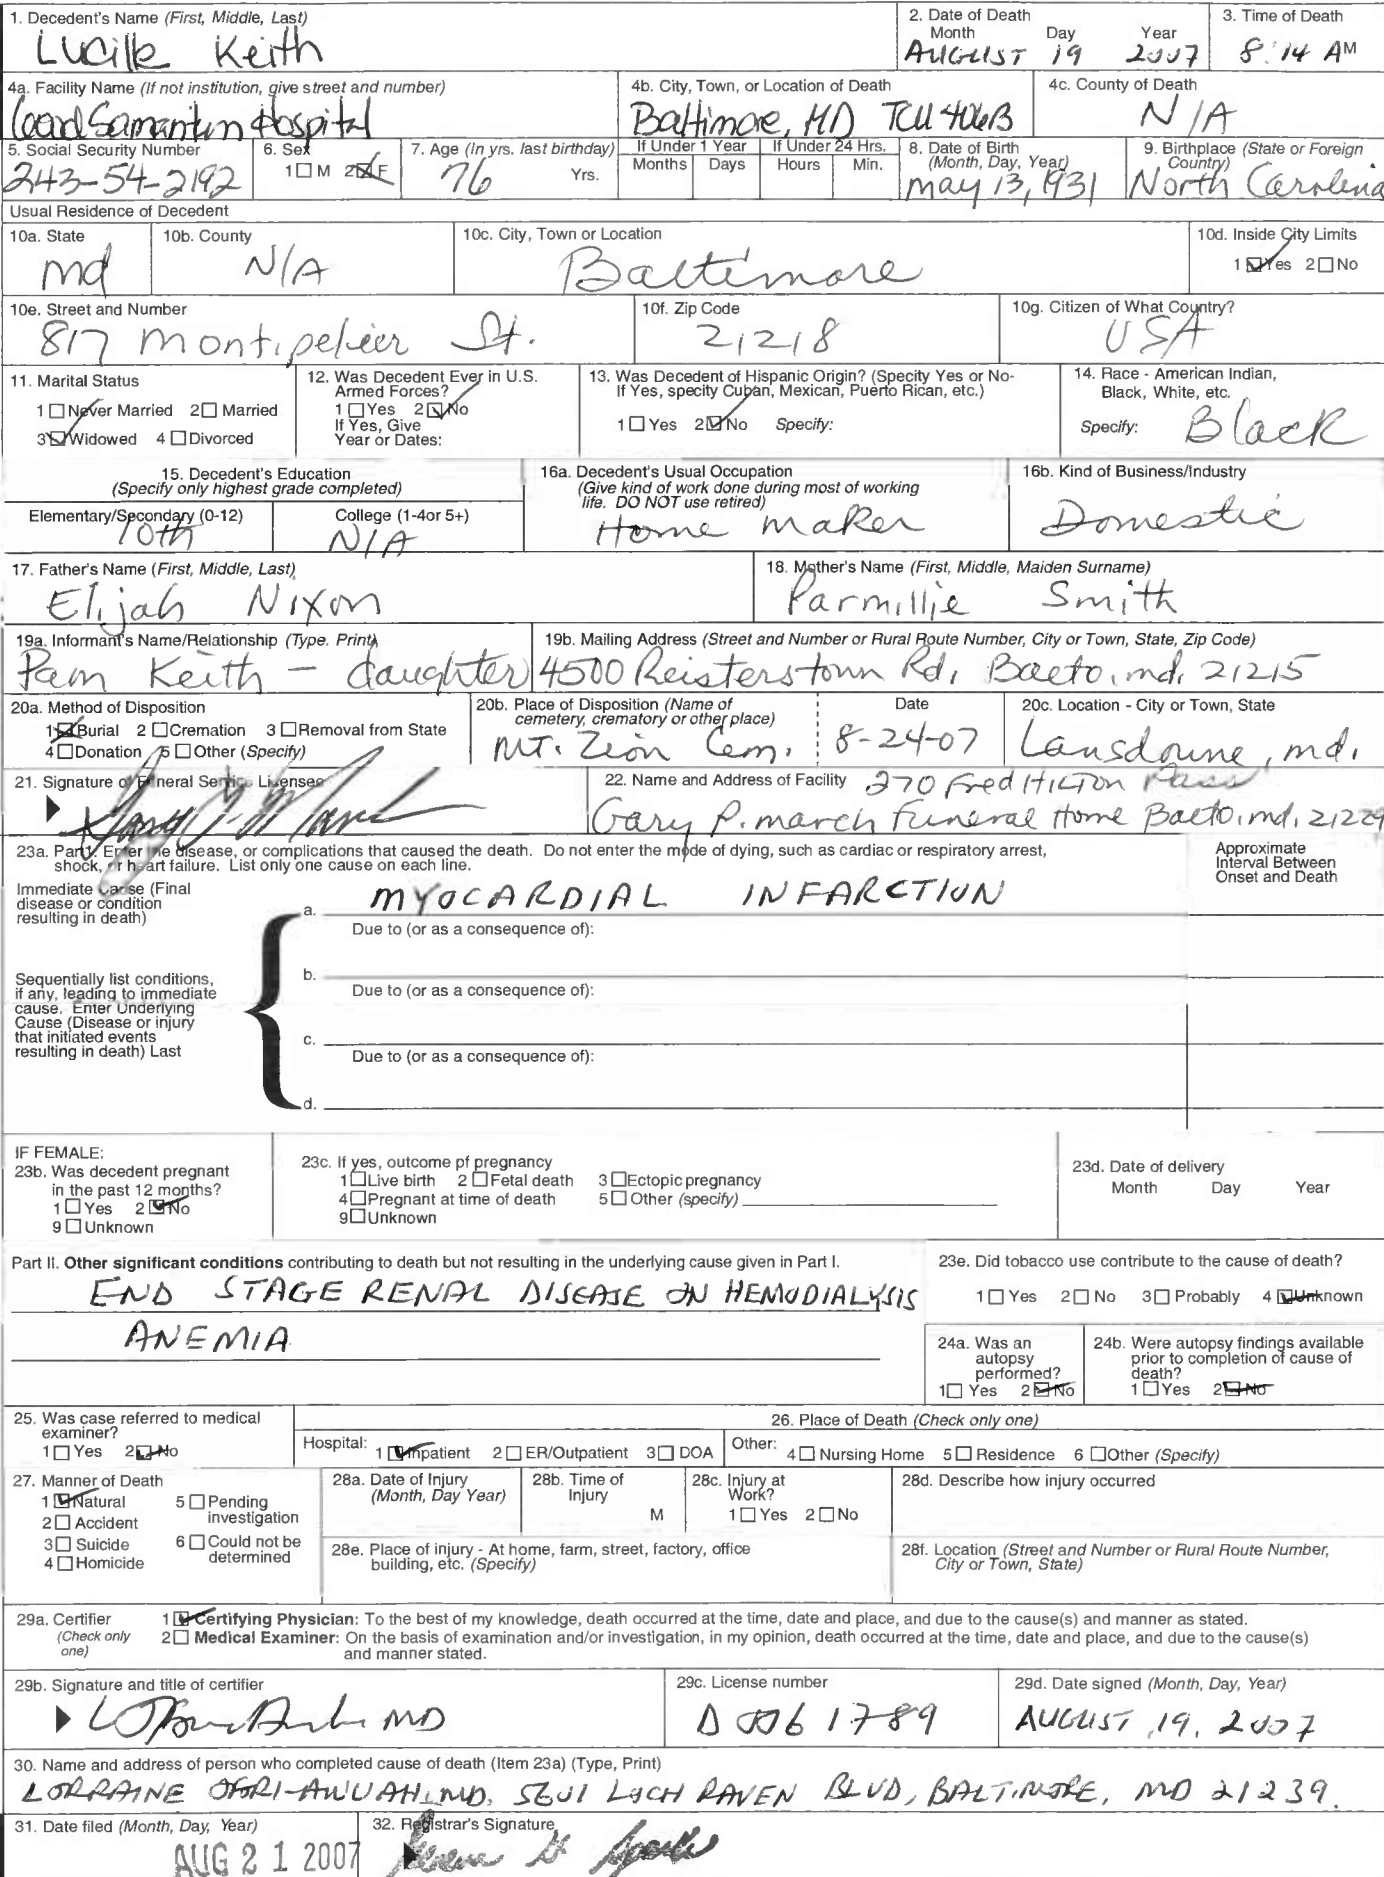 1. Decedent's Name (First, Middle, Last)
Lucille Keith
2. Date of Death
Month Day Year
AUGUST 19 2007
3. Time of Death
8:14 AM
4a. Facility Name (If not institution, give street and number)
Good Samaritan Hospital
4b. City, Town, or Location of Death
Baltimore, MD TCU 406B
4c. County of Death
N/A
5. Social Security Number
243-54-2192
6. Sex
1 M 2 F
7. Age (In yrs. last birthday)
76 Yrs.
If Under 1 Year
Months Days
If Under 24 Hrs.
Hours Min.
8. Date of Birth
(Month, Day, Year)
may 13, 1931
9. Birthplace (State or Foreign
Country)
North Carolina
Usual Residence of Decedent
10a. State
md
10b. County
N/A
10c. City, Town or Location
Baltimore
10d. Inside City Limits
1 Yes 2 No
10e. Street and Number
817 Montipelier St.
10f. Zip Code
21218
10g. Citizen of What Country?
USA
11. Marital Status
1 Never Married 2 Married
3 Widowed 4 Divorced
12. Was Decedent Ever in U.S.
Armed Forces?
1 Yes 2 No
If Yes, Give
Year or Dates:
13. Was Decedent of Hispanic Origin? (Specify Yes or No-
If Yes, specify Cuban, Mexican, Puerto Rican, etc.)
1 Yes 2 No Specify:
14. Race - American Indian,
Black, White, etc.
Specify: Black
15. Decedent's Education
(Specify only highest grade completed)
Elementary/Secondary (0-12)
10th
College (1-4or 5+)
N/A
16a. Decedent's Usual Occupation
(Give kind of work done during most of working
life. DO NOT use retired)
Home maker
16b. Kind of Business/Industry
Domestic
17. Father's Name (First, Middle, Last)
Elijah Nixon
18. Mother's Name (First, Middle, Maiden Surname)
Parmillie Smith
19a. Informant's Name/Relationship (Type. Print)
Pam Keith - daughter
19b. Mailing Address (Street and Number or Rural Route Number, City or Town, State, Zip Code)
4500 Reisterstown Rd, Balto, md, 21215
20a. Method of Disposition
1 Burial 2 Cremation 3 Removal from State
4 Donation 5 Other (Specify)
20b. Place of Disposition (Name of
cemetery, crematory or other place)
MT. Zion Cem.
Date
8-24-07
20c. Location - City or Town, State
Lansdowne, md.
21. Signature of Funeral Service Licensee
22. Name and Address of Facility 270 Fred HILTON Pass
Gary P. march Funeral Home Balto, md, 21229
23a. Part I. Enter the disease, or complications that caused the death. Do not enter the mode of dying, such as cardiac or respiratory arrest,
shock, or heart failure. List only one cause on each line.
Approximate
Interval Between
Onset and Death
Immediate Cause (Final
disease or condition
resulting in death)
a. MYOCARDIAL INFARCTION
Due to (or as a consequence of):
Sequentially list conditions,
if any, leading to immediate
cause. Enter Underlying
Cause (Disease or injury
that initiated events
resulting in death) Last
b.
Due to (or as a consequence of):
c.
Due to (or as a consequence of):
d.
IF FEMALE:
23b. Was decedent pregnant
in the past 12 months?
1 Yes 2 No
9 Unknown
23c. If yes, outcome pf pregnancy
1 Live birth 2 Fetal death 3 Ectopic pregnancy
4 Pregnant at time of death 5 Other (specify)
9 Unknown
23d. Date of delivery
Month Day Year
Part II. Other significant conditions contributing to death but not resulting in the underlying cause given in Part I.
END STAGE RENAL DISEASE ON HEMODIALYSIS
ANEMIA
23e. Did tobacco use contribute to the cause of death?
1 Yes 2 No 3 Probably 4 Unknown
24a. Was an
autopsy
performed?
1 Yes 2 No
24b. Were autopsy findings available
prior to completion of cause of
death?
1 Yes 2 No
25. Was case referred to medical
examiner?
1 Yes 2 No
26. Place of Death (Check only one)
Hospital: 1 Inpatient 2 ER/Outpatient 3 DOA
Other: 4 Nursing Home 5 Residence 6 Other (Specify)
27. Manner of Death
1 Natural 5 Pending
investigation
2 Accident
3 Suicide 6 Could not be
determined
4 Homicide
28a. Date of Injury
(Month, Day Year)
28b. Time of
Injury
M
28c. Injury at
Work?
1 Yes 2 No
28d. Describe how injury occurred
28e. Place of injury - At home, farm, street, factory, office
building, etc. (Specify)
28f. Location (Street and Number or Rural Route Number,
City or Town, State)
29a. Certifier
(Check only
one)
1 Certifying Physician: To the best of my knowledge, death occurred at the time, date and place, and due to the cause(s) and manner as stated.
2 Medical Examiner: On the basis of examination and/or investigation, in my opinion, death occurred at the time, date and place, and due to the cause(s)
and manner stated.
29b. Signature and title of certifier
MD
29c. License number
D0061789
29d. Date signed (Month, Day, Year)
AUGUST 19, 2007
30. Name and address of person who completed cause of death (Item 23a) (Type, Print)
LORRAINE OFORI-AWUAH, MD, 5601 LOCH RAVEN BLVD, BALTIMORE, MD 21239.
31. Date filed (Month, Day, Year)
AUG 21 2007
32. Registrar's Signature